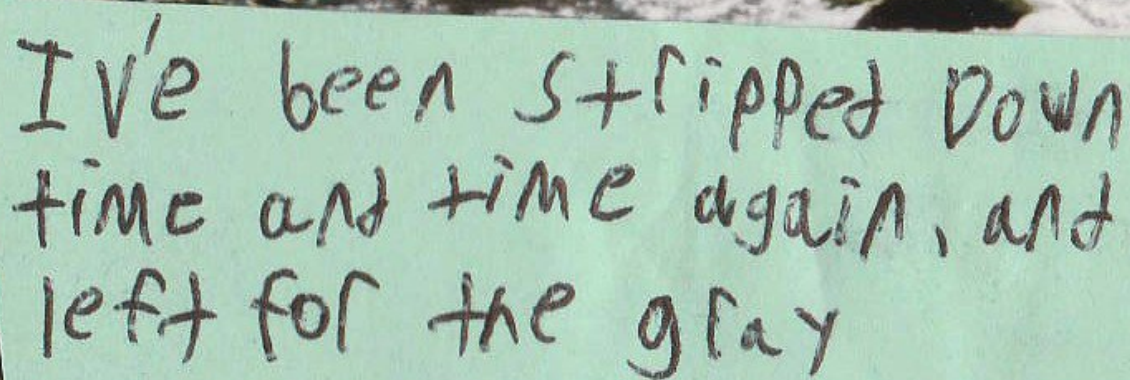 I've been stripped Down
time and time again, and
left for the gray